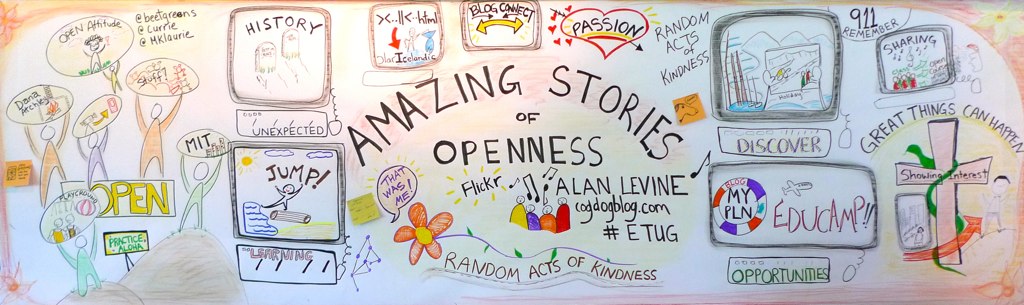 OPEN Attitude
@beetgreens
@currie
@HKlaurie
Stuff?
Dana
Archley
MIT
PLAYGROUND
OPEN
PRACTICE
ALOHA
HISTORY
UNEXPECTED
JUMP!
LEARNING
><..||<..html
Icelandic
BLOG CONNECT
PASSION
RANDOM
ACTS
OF
KINDNESS
AMAZING STORIES
OF
OPENNESS
THAT
WAS
ME!
Flickr
ALAN LEVINE
cogdogblog.com
# ETUG
RANDOM ACTS OF KINDNESS
DISCOVER
911
REMEMBER
SHARING
BLOG
MY
PLN
EDUCAMP!!
OPPORTUNITIES
GREAT THINGS CAN HAPPEN
Showing Interest